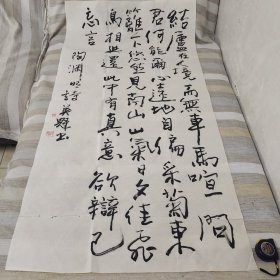 結廬在人境而無車馬喧問
君何能爾心遠地自偏采菊東
籬下悠然見南山山氣日夕佳飛
鳥相與還此中有真意欲辯已
忘言
陶淵明詩 英輝書